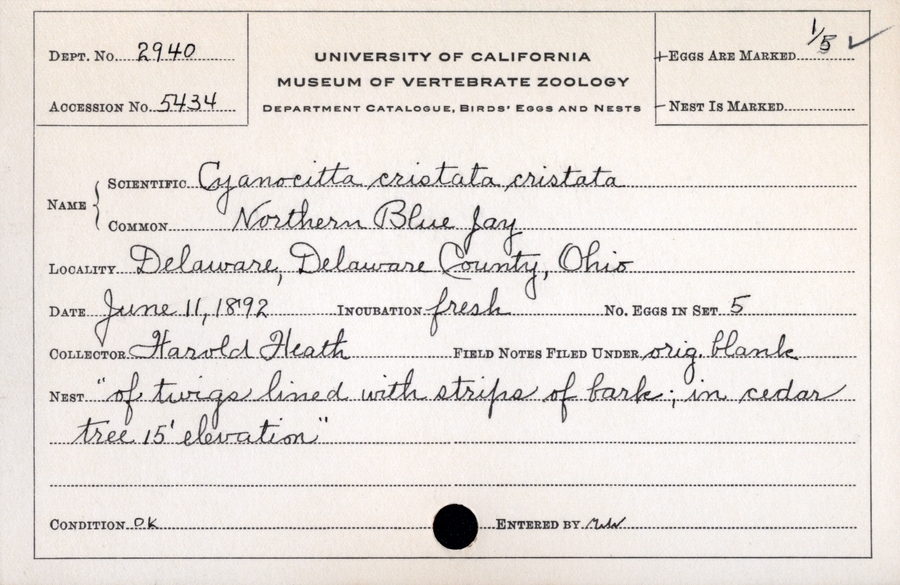 DEPT. NO. 2940
ACCESSION NO. 5434
UNIVERSITY OF CALIFORNIA
MUSEUM OF VERTEBRATE ZOOLOGY
DEPARTMENT CATALOGUE, BIRDS' EGGS AND NESTS
EGGS ARE MARKED 1/5 ✓
NEST IS MARKED
NAME
SCIENTIFIC Cyanocitta cristata cristata
COMMON Northern Blue Jay
LOCALITY Delaware, Delaware County, Ohio
DATE June 11, 1892 INCUBATION fresh NO. EGGS IN SET 5
COLLECTOR Harold Heath FIELD NOTES FILED UNDER orig. blank
NEST "of twigs lined with strips of bark; in cedar
tree 15' elevation"
CONDITION OK ENTERED BY